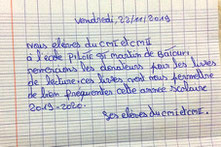 Vendredi, 22/11/2019
Nous élèves du cm1 et cm2
à l'école Pilote St Martin de
remercions les donateurs pour les livres
de lecture, ces livres vont nous permettre
de bien fréquenter cette année scolaire
2019-2020.
Les élèves du cm1 et cm2.